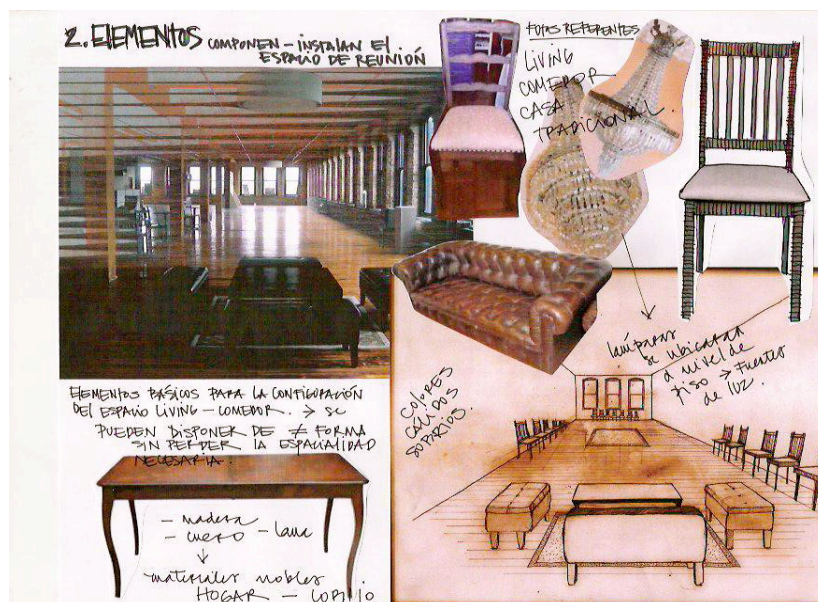 2. ELEMENTOS COMPONEN - INSTALAN EL
ESPACIO DE REUNIÓN
FOTOS REFERENTES
LIVING
COMEDOR
CASA
TRADICIONAL.
lámparas
se ubicarán
a nivel de
piso → Fuentes
de luz.
COLORES
CALIDOS
SOBRIOS.
ELEMENTOS BÁSICOS PARA LA CONFIGURACIÓN
DEL ESPACIO LIVING - COMEDOR. → SE
PUEDEN DISPONER DE ≠ FORMA
SIN PERDER LA ESPACIALIDAD
NECESARIA.
- madera
- cuero - lana
↓
materiales nobles
HOGAR - COBIJO